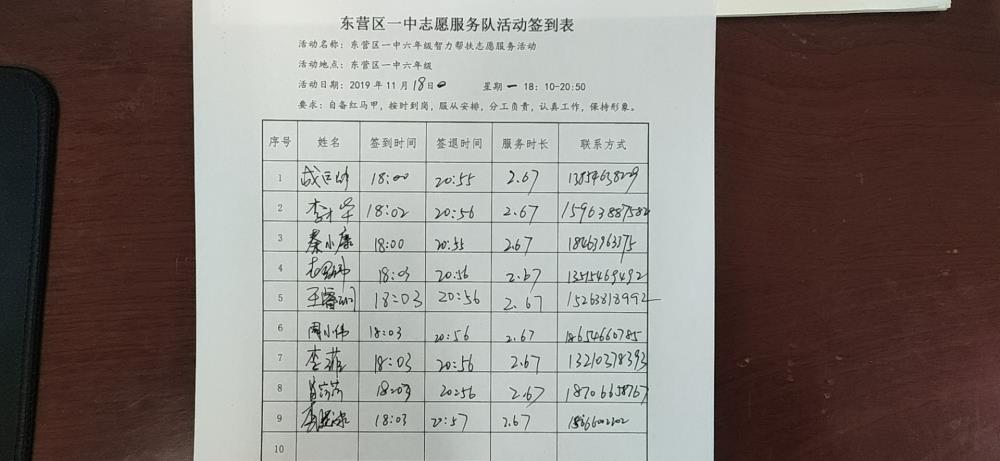 东营区一中志愿服务队活动签到表
活动名称：东营区一中六年级智力帮扶志愿服务活动
活动地点：东营区一中六年级
活动日期：2019 年 11 月 18日 星期一 18：10-20:50
要求：自备红马甲，按时到岗，服从安排，分工负责，认真工作，保持形象。
序号 姓名 签到时间 签退时间 服务时长 联系方式
1 18:00 20:55 2.67
2 18:02 20:56 2.67 15963887582
3 秦小康 18:00 20:55 2.67 18463963375
4 18:03 20:56 2.67 13515469492
5 18:03 20:56 2.67 15263818992
6 周小伟 18:03 20:56 2.67 18654660785
7 李菲 18:03 20:56 2.67 13210378393
8 18:03 20:56 2.67 18706658767
9 18:03 20:57 2.67
10